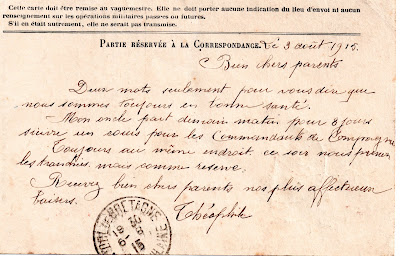 Cette carte doit être remise au vaguemestre. Elle ne doit porter aucune indication du lieu d'envoi ni aucun
renseignement sur les opérations militaires passées ou futures.
S'il en était autrement, elle ne serait pas transmise.
PARTIE RÉSERVÉE À LA CORRESPONDANCE. Le 3 août 1915.
Bien chers parents
Deux mots seulement pour vous dire que
nous sommes toujours en bonne santé.
Mon oncle part demain matin pour 8 jours
suivre un cours pour les Commandants de Compagnie
Toujours au même endroit, ce soir nous prenons
les tranchées, mais comme réserve.
Recevez bien chers parents nos plus affectueux
baisers.
Théophile
BRETAGNE